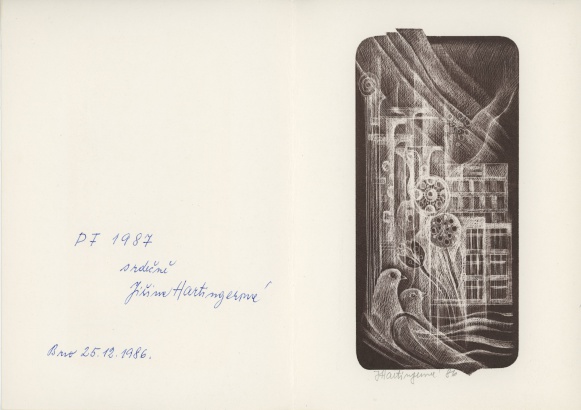 PF 1987
srdečně
Jiřina Hartingerová
Brno 25.12.1986.
JHartingerová 86